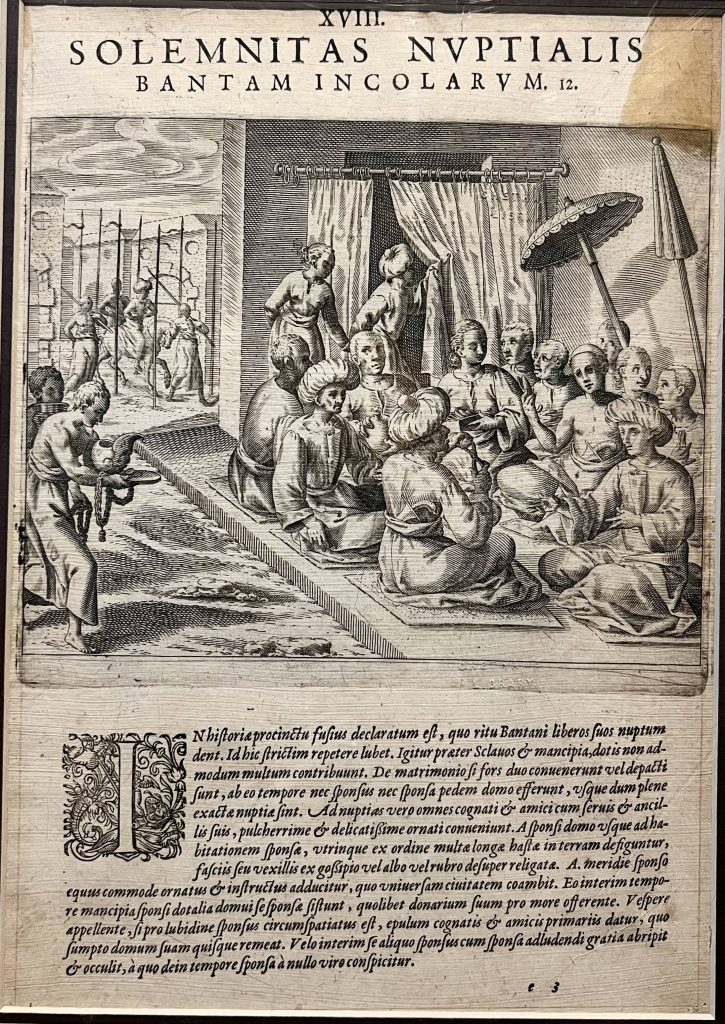 XVIII.
SOLEMNITAS NVPTIALIS
BANTAM INCOLARVM. 12.
IN historiæ procinctu fusius declaratum est, quo ritu Bantani liberos suos nuptum
dent. Id hic strictim repetere lubet. Igitur præter Sclauos & mancipia, dotis non ad-
modum multum contribuunt. De matrimonio si fors duo conuenerunt vel depacti
sunt, ab eo tempore nec sponsus nec sponsa pedem domo efferunt, vsque dum plene
exactæ nuptiæ sint. Ad nuptias vero omnes cognati & amici cum seruis & ancil-
lis suis, pulcherrime & delicatissime ornati conueniunt. A sponsi domo vsque ad ha-
bitationem sponsæ, vtrinque ex ordine multæ longæ hastæ in terram defiguntur,
fasciis seu vexillis ex gossipio vel albo vel rubro desuper religatæ. A meridie sponso
equus commode ornatus & instructus adducitur, quo vniuersam ciuitatem coambit. Eo interim tempo-
re mancipia sponsi dotalia domui se sponsæ sistunt, quolibet donarium suum pro more offerente. Vespere
appellente, si pro lubidine sponsus circumspatiatus est, epulum cognatis & amicis primariis datur, quo
sumpto domum suam quisque remeat. Velo interim se aliquo sponsus cum sponsa adludendi gratia abripit
& occulit, à quo dein tempore sponsa à nullo viro conspicitur.
e 3